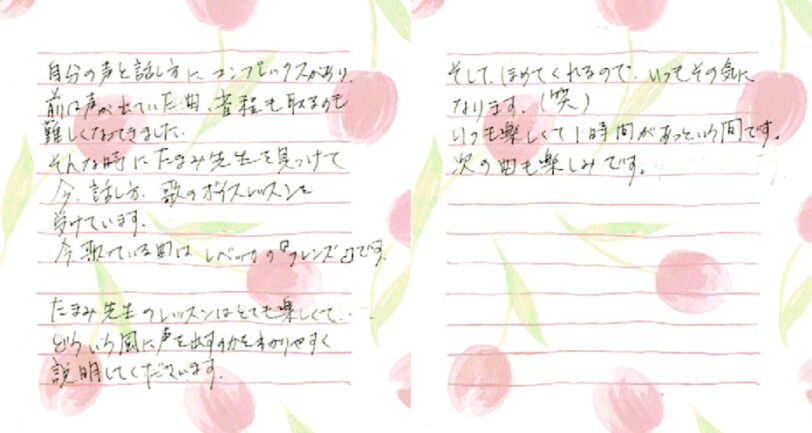 自分の声と話し方にコンプレックスがあり、
前は声が出ていた曲、音程も取るのも
難しくなってきました。
そんな時にたまみ先生を見つけて
今、話し方、歌のボイスレッスンを
受けています。
今歌っている曲はレベッカの『フレンズ』です。
たまみ先生のレッスンはとても楽しくて…
どういう風に声を出すのかをわかりやすく
説明してくださいます。
そして、ほめてくれるので、いつもその気に
なります。(笑)
いつも楽しくて1時間があっという間です。
次の曲も楽しみです。